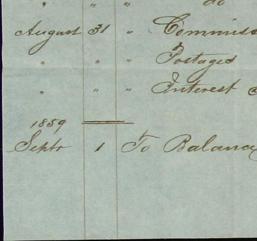 " " " Do
August 31 " Commiss
" " " Postages
" " " Interest
1859
Septr 1 To Balance